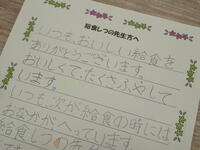 給食しつの先生方へ
いつも、おいしい給食を
ありがとうございます。
おいしくて、たくさんふやして
います。
いつも、次が給食の時には
おなかがへっています。
給食しつの